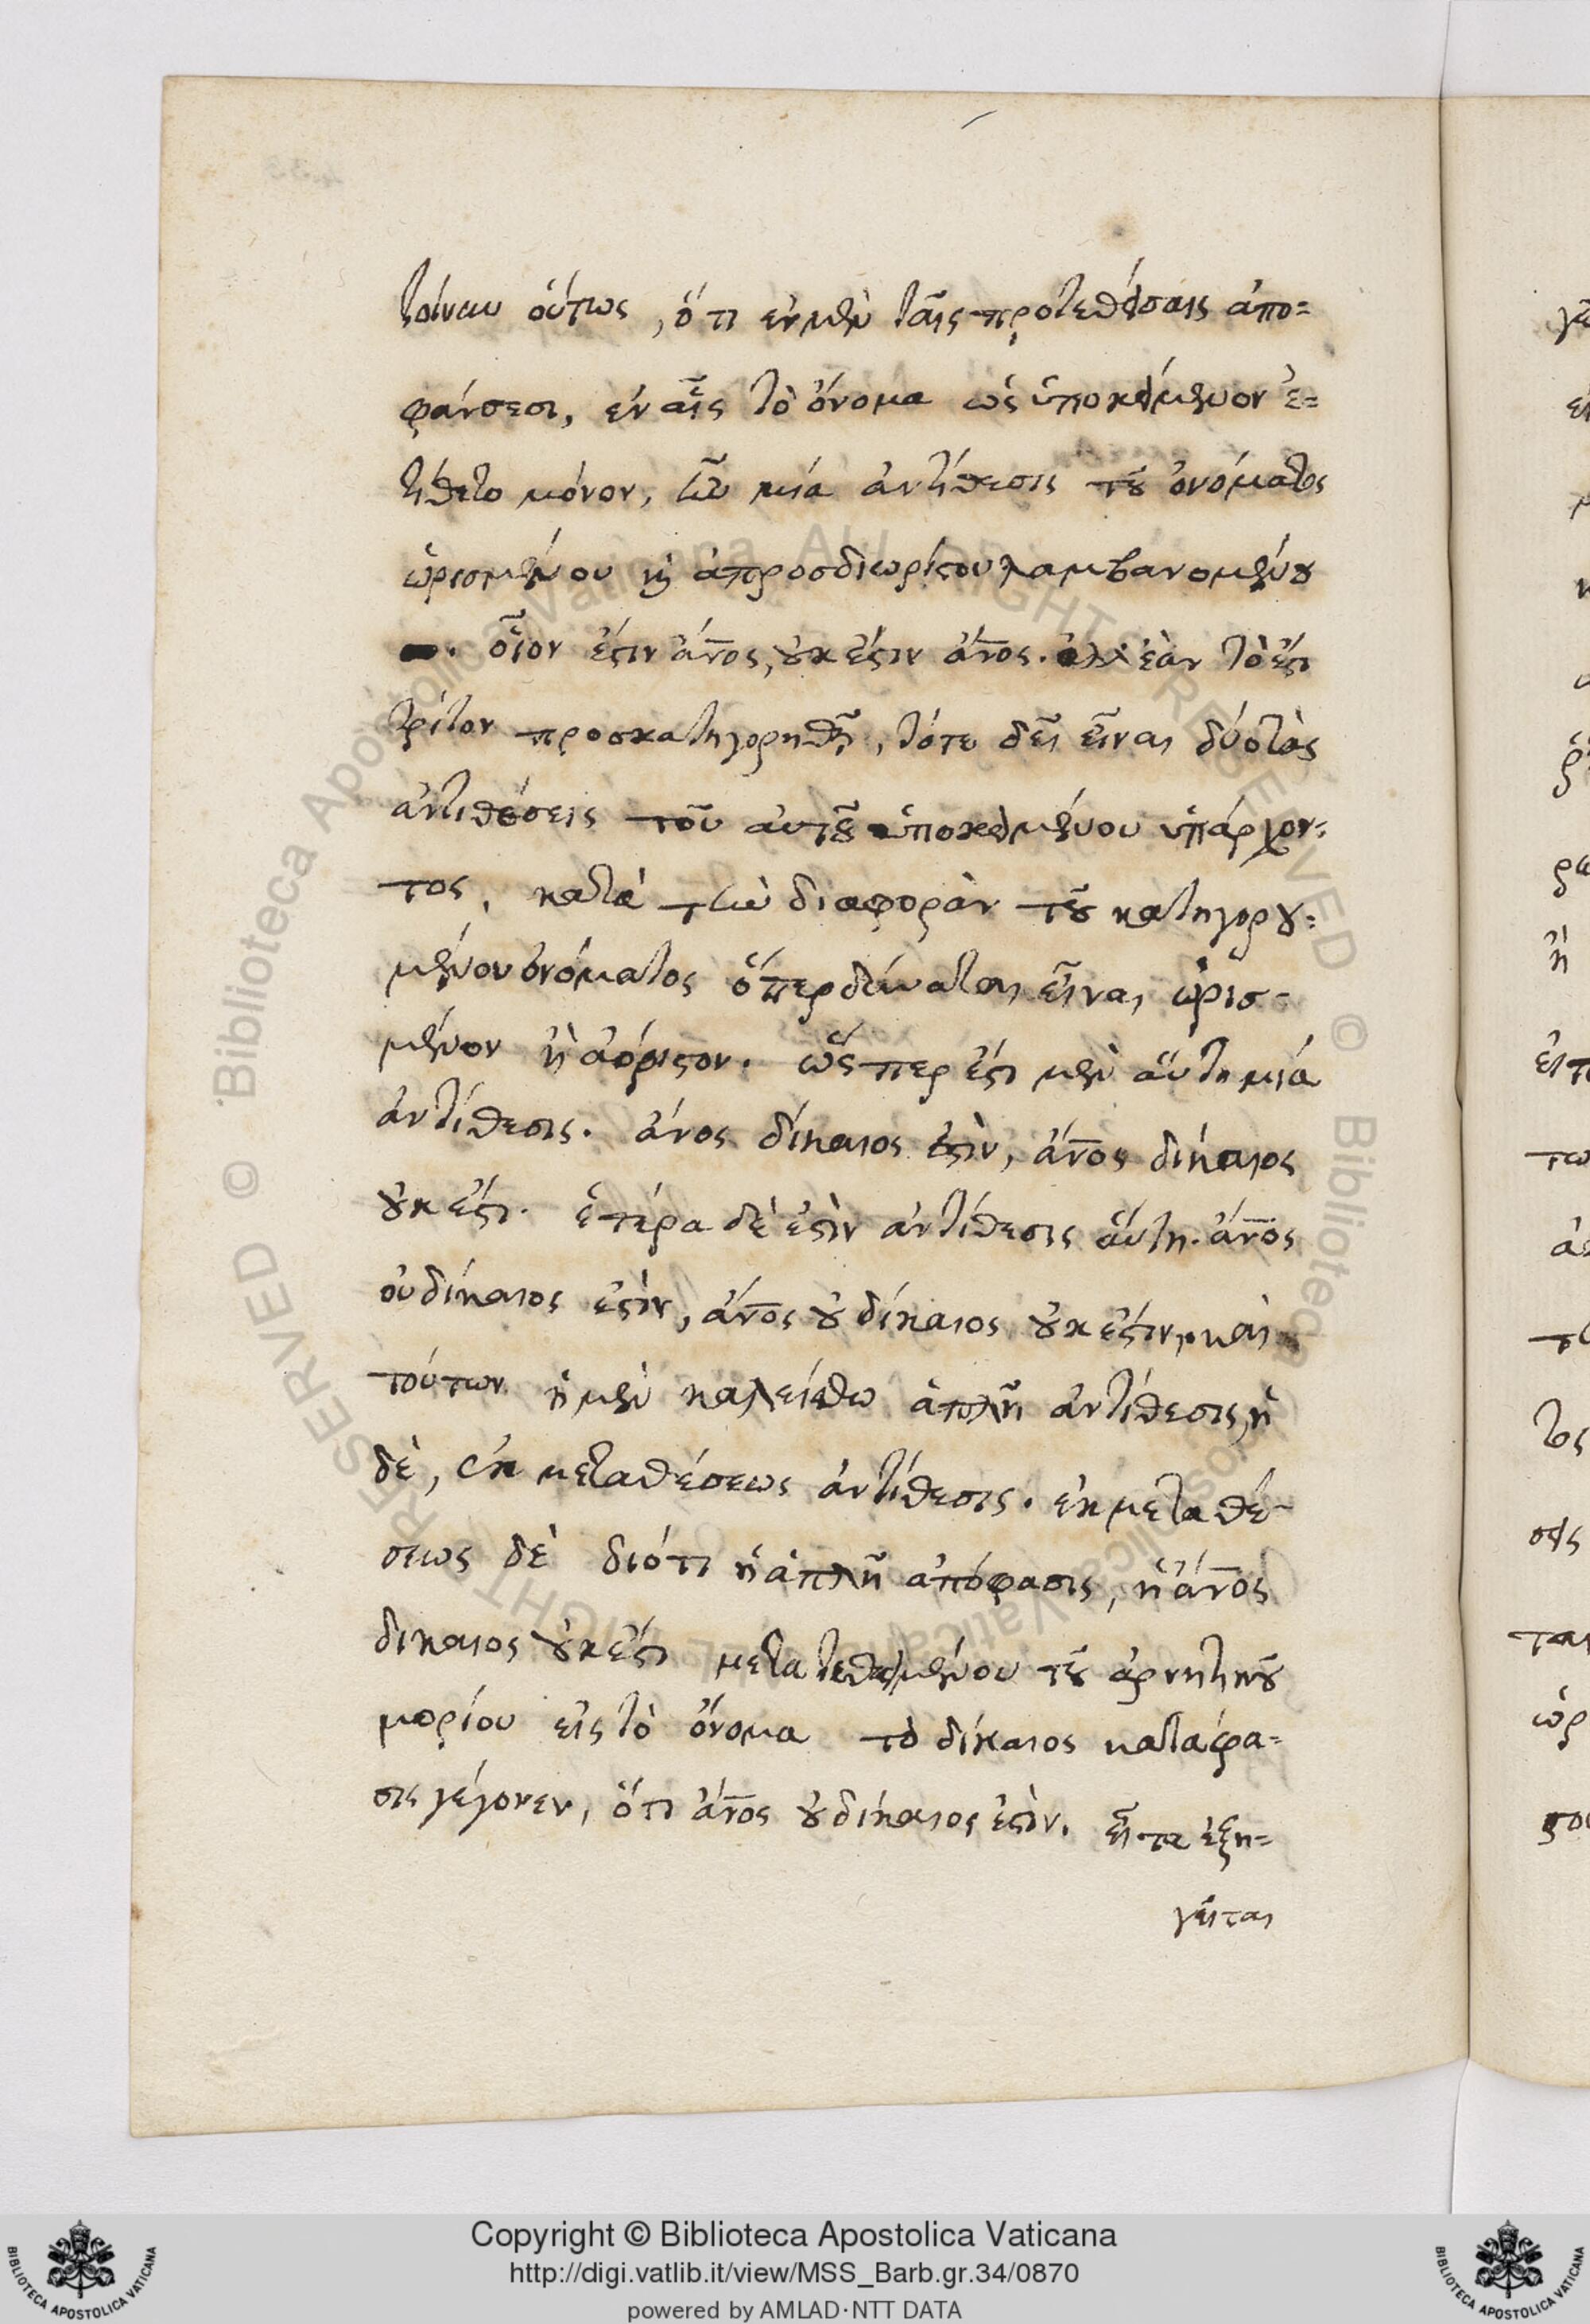 τοίνυν οὕτως, ὅτι ἐν μὲν ταῖς προτεθείσαις ἀπο=
φάνσεσι, ἐν αἷς τὸ ὄνομα ὡς ὑποκείμενον ἐ=
τίθετο μόνον, ἦν μία ἀντίθεσις τοῦ ὀνόματος
ὡρισμένου καὶ ἀπροσδιορίστου λαμβανομένου
. οἷον ἔστιν ἄνος, οὐκ ἔστιν ἄνος. ἐὰν τὸ ἔστι
τρίτον προσκατηγορηθῇ, τότε δεῖ εἶναι δύο τὰς
ἀντιθέσεις τοῦ αυτοῦ ὑποκειμένου ὑπάρχον=
τος, κατὰ τὴν διαφορὰν τοῦ κατηγορου=
μένου ὀνόματος ὅπερ δύναται εἶναι ὡρισ=
μένον ἢ ἀόριστον. ὥσπερ ἔστι μὲν αὕτη μία
ἀντίθεσις. ἄνος δίκαιος ἐστὶν, ἄνος δίκαιος
οὐκ ἔστι. ἑτέρα δὲ ἐστὶν ἀντίθεσις αὕτη. ἄνος
οὐ δίκαιος ἐστὶν, ἄνος οὐ δίκαιος οὐκ ἔστιν, καὶ
τούτων ἡ μὲν καλείσθω ἁπλῆ ἀντίθεσις, ἡ
δὲ, ἐκ μεταθέσεως ἀντίθεσις. ἐκ μεταθέ=
σεως δὲ διότι ἡ ἁπλῆ ἀπόφασις, ἡ ἄνος
δίκαιος οὐκ ἔστι μετατεθειμένου τοῦ ἀρνητικοῦ
μορίου εἰς τὸ ὄνομα τὸ δίκαιος κατάφα=
σις γέγονεν, ὅτι ἄνος οὐ δίκαιος ἐστὶν. εἶτα ἐξη=
γεῖται
Copyright © Biblioteca Apostolica Vaticana
http://digi.vatlib.it/view/MSS_Barb.gr.34/0870
powered by AMLAD·NTT DATA